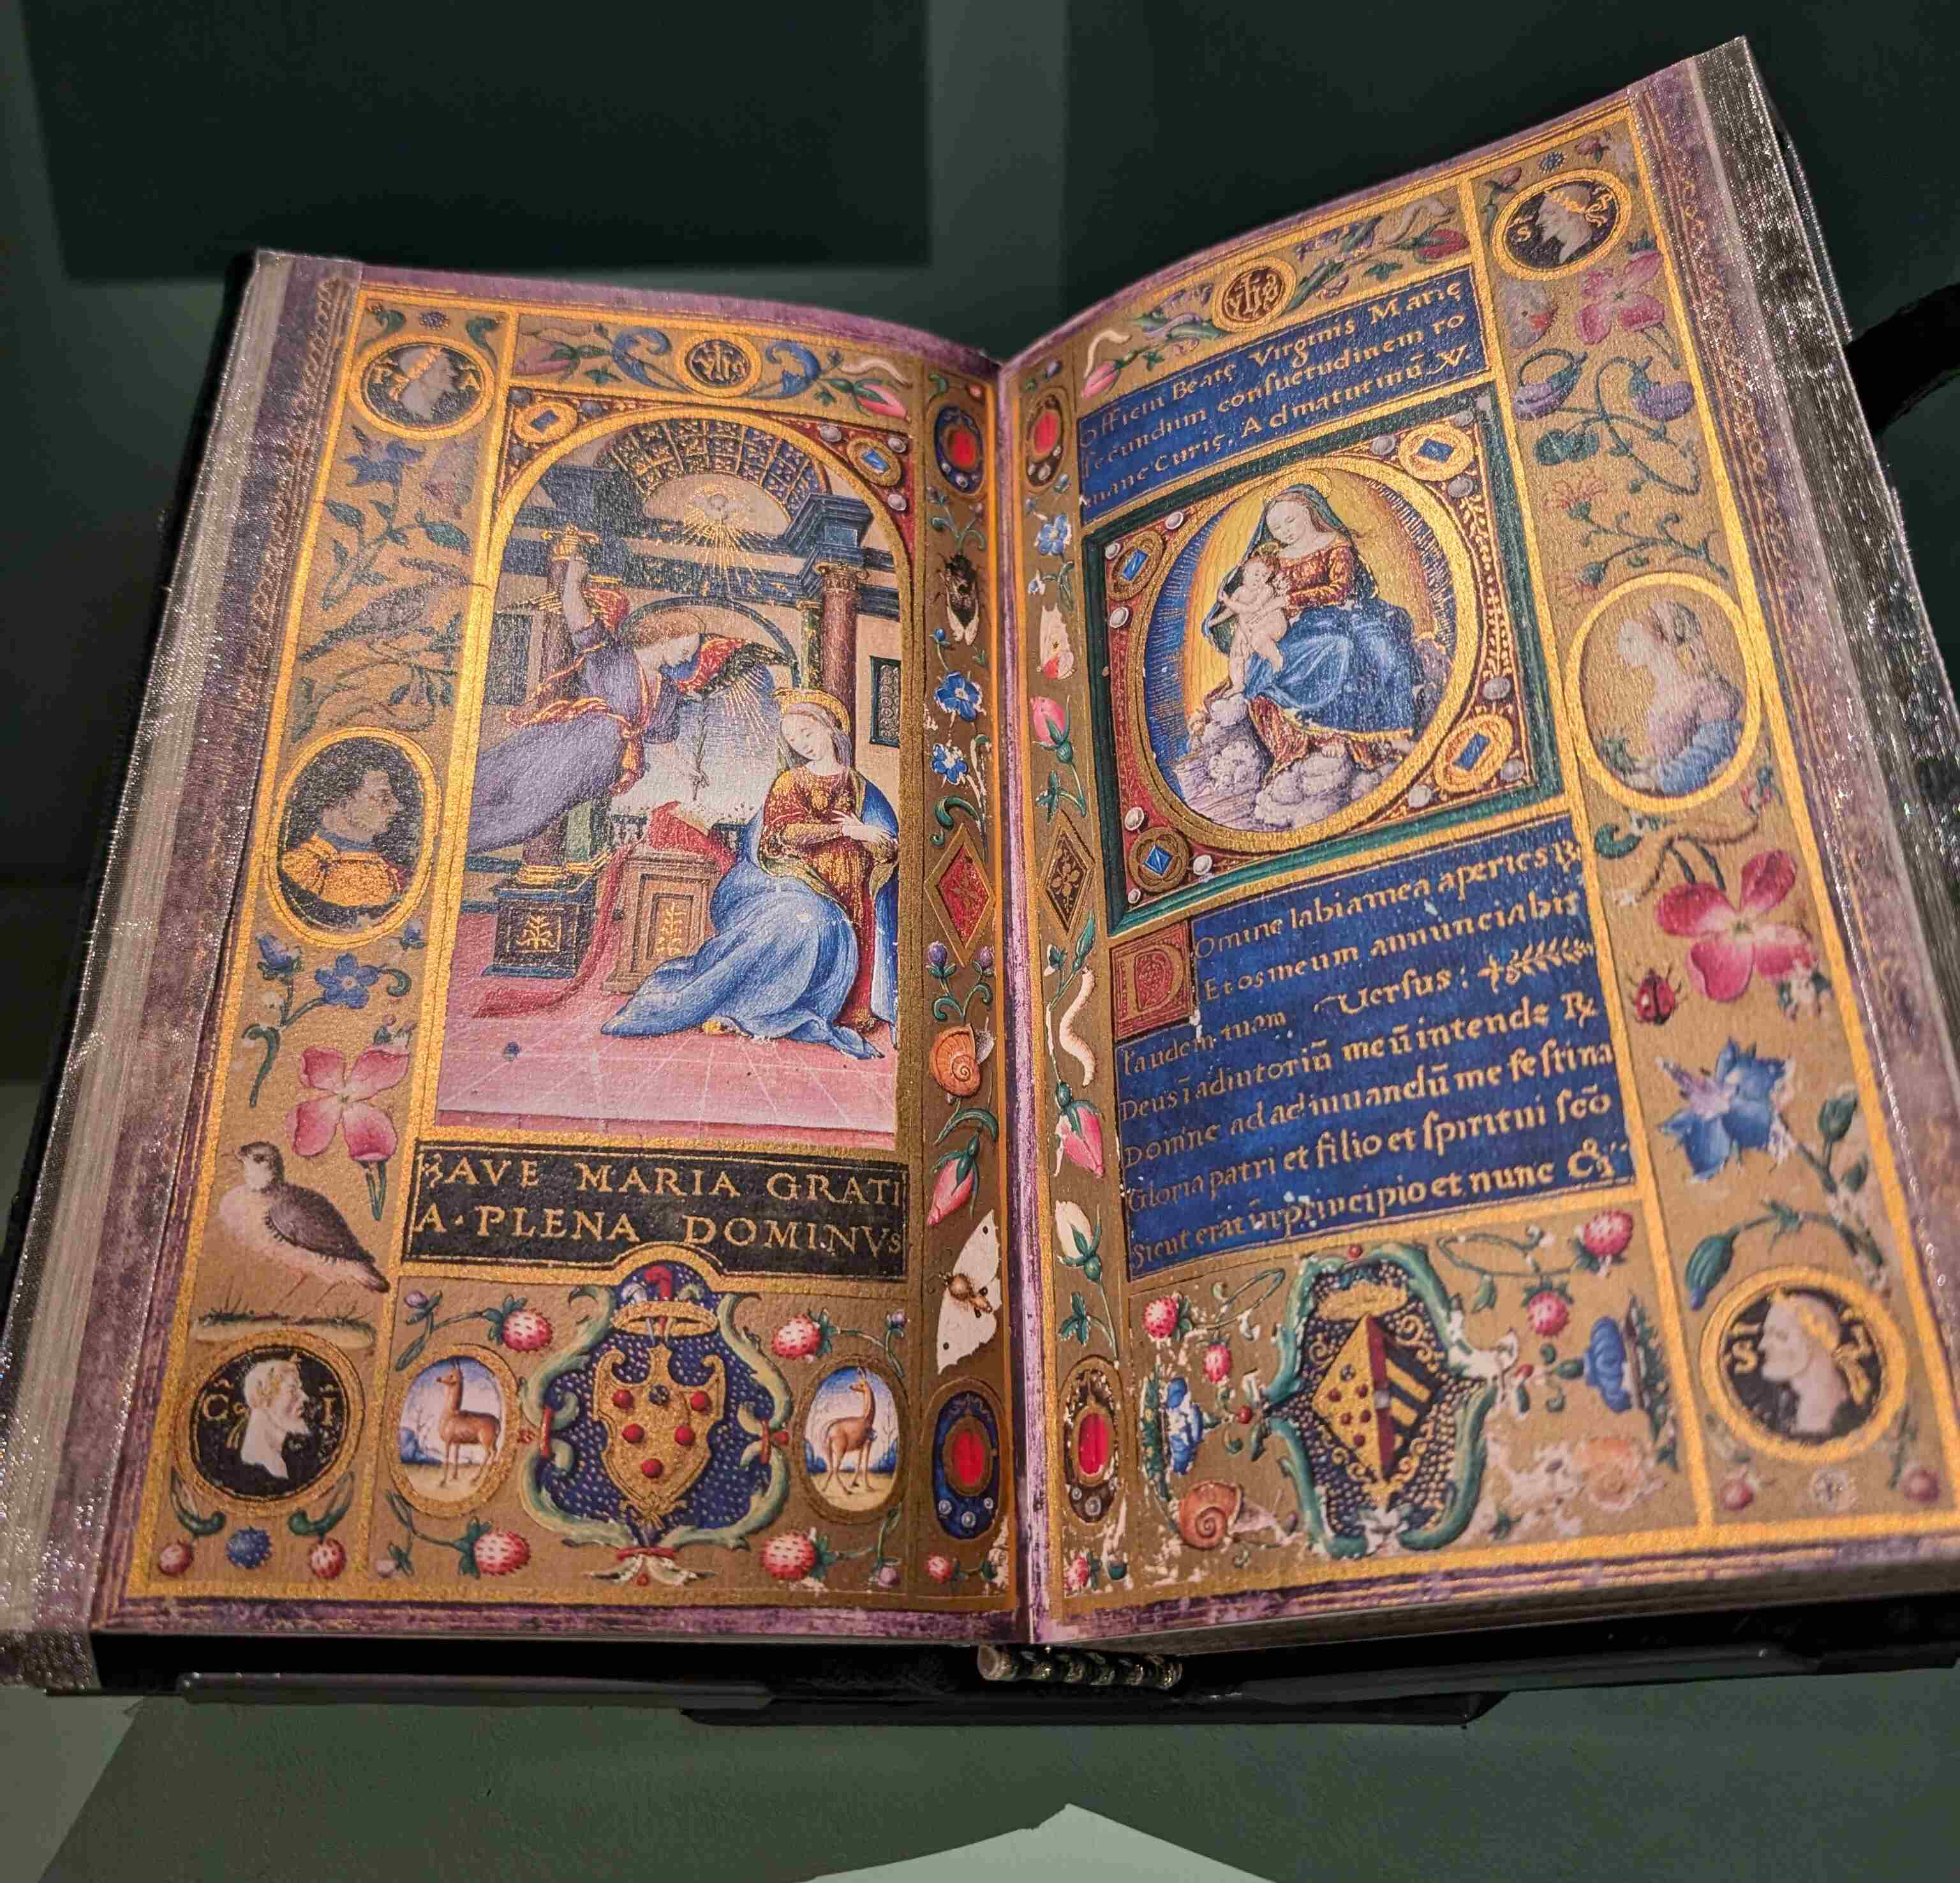 AVE MARIA GRATI
A·PLENA DOMINVS
C I
yhs
yhs
Officiũ Beatę Virginis Marię
secundum consuetudinem ro
mane Curię. Ad matutinũ. ℣.
Domine labia mea aperies ℞
Et os meum annunciabit
laudem tuam Versus:
Deus ĩ adiutoriũ meũ intende ℞
Domine ad adiuuandũ me festina
Gloria patri et filio et spiritui scõ
Sicut erat ĩn principio et nunc &
S
S